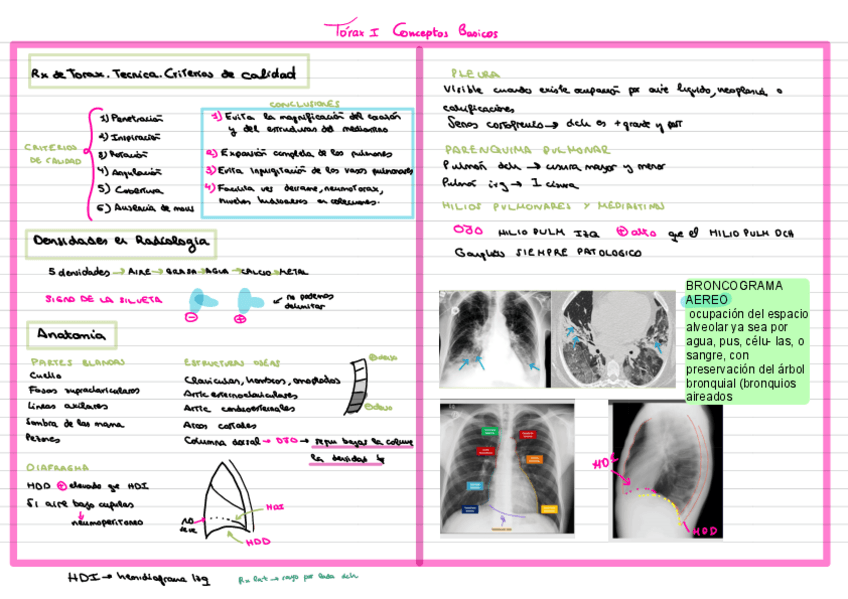 Tórax I Conceptos Basicos
Rx de Torax. Tecnica. Criterios de calidad
CRITERIOS DE CALIDAD
1) Penetración
2) Inspiración
3) Rotación
4) Angulación
5) Cobertura
6) Ausencia de mov
CONCLUSIONES
1) Evita la magnificación del corazón
y del estructuras del mediastino
2) Expansión completa de los pulmones
3) Evita
4) Facilita ver derrame, neumotorax,
niveles hidroaereos en colecciones.
Densidades en Radiologia
5 densidades → AIRE → GRASA → AGUA → CALCIO → METAL
SIGNO DE LA SILUETA
no podemos
delimitar
Anatomia
PARTES BLANDAS
Cuello
Fosas supraclaviculares
Lineas axilares
Sombra de las mama
Pezones
ESTRUCTURAS OSEAS
Claviculas, hombros, omoplatos
Artic esternoclaviculares
Artic
Arcos costales
Columna dorsal → OJO → según bajas la colum
la densidad ↓
DIAFRAGMA
HDD ⊕ elevado que HDI
Si aire bajo cupulas
↓
neumoperitoneo
HDI
HDD
HDI → hemidiafragma izq
Rx lat → rayo por lado dch
PLEURA
Visible cuando existe ocupación por aire liquido, neoplasia o
calcificaciones
Senos costofrenico → dch es + grande y post
PARENQUIMA PULMONAR
Pulmón dch → cisura mayor y menor
Pulmon izq → 1 cisura
HILIOS PULMONARES Y MEDIASTINO
OJO HILIO PULM IZQ ⊕ alto que el HILIO PULM DCH
Ganglios SIEMPRE PATOLOGICO
BRONCOGRAMA
AEREO
ocupación del espacio
alveolar ya sea por
agua, pus, célu- las, o
sangre, con
preservación del árbol
bronquial (bronquios
aireados
HDI
HDD